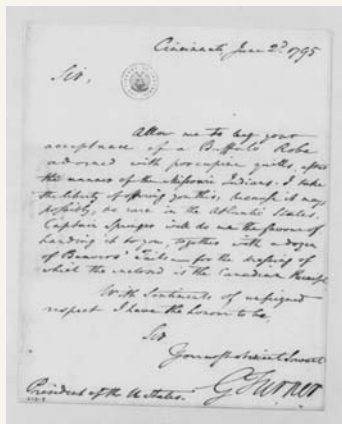 Cincinnati, June 2d. 1795
Sir,
Allow me to beg your
acceptance of a Buffalo Robe
adorned with porcupine quills, after
the manner of the Missouri Indians. I take
the liberty of offering you this, because it may
possibly, be rare in the Atlantic States.
Captain Springer will do me the favour of
handing it to you, together with a dozen
of Beavers' Tails — for the dressing of
which the inclosed is the Canadian Receipt.
With Sentiments of unfeigned
respect I have the honour to be,
Sir
Your most obedient Servant
G Turner
President of the U. States.